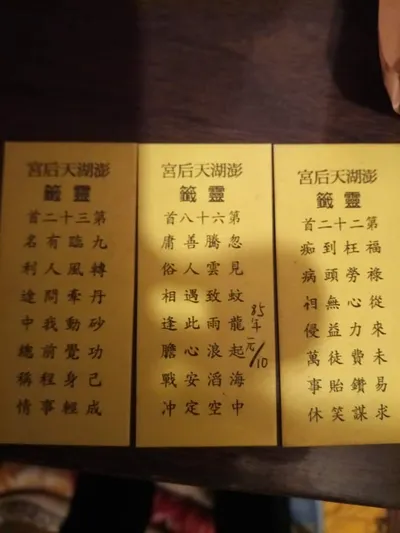 澎湖天后宮
靈籤
第三十二首
九轉丹砂功己成
臨風牽動覺身輕
有人問我前程事
名利途中總稱情
澎湖天后宮
靈籤
第六十八首
忽見蚊龍起海中
騰雲致雨浪滔空
善人遇此心安定
庸俗相逢膽戰冲
85年元/10
澎湖天后宮
靈籤
第二十二首
福祿從來未易求
枉勞心力費鑽謀
到頭無益徒貽笑
痴病優萬事休